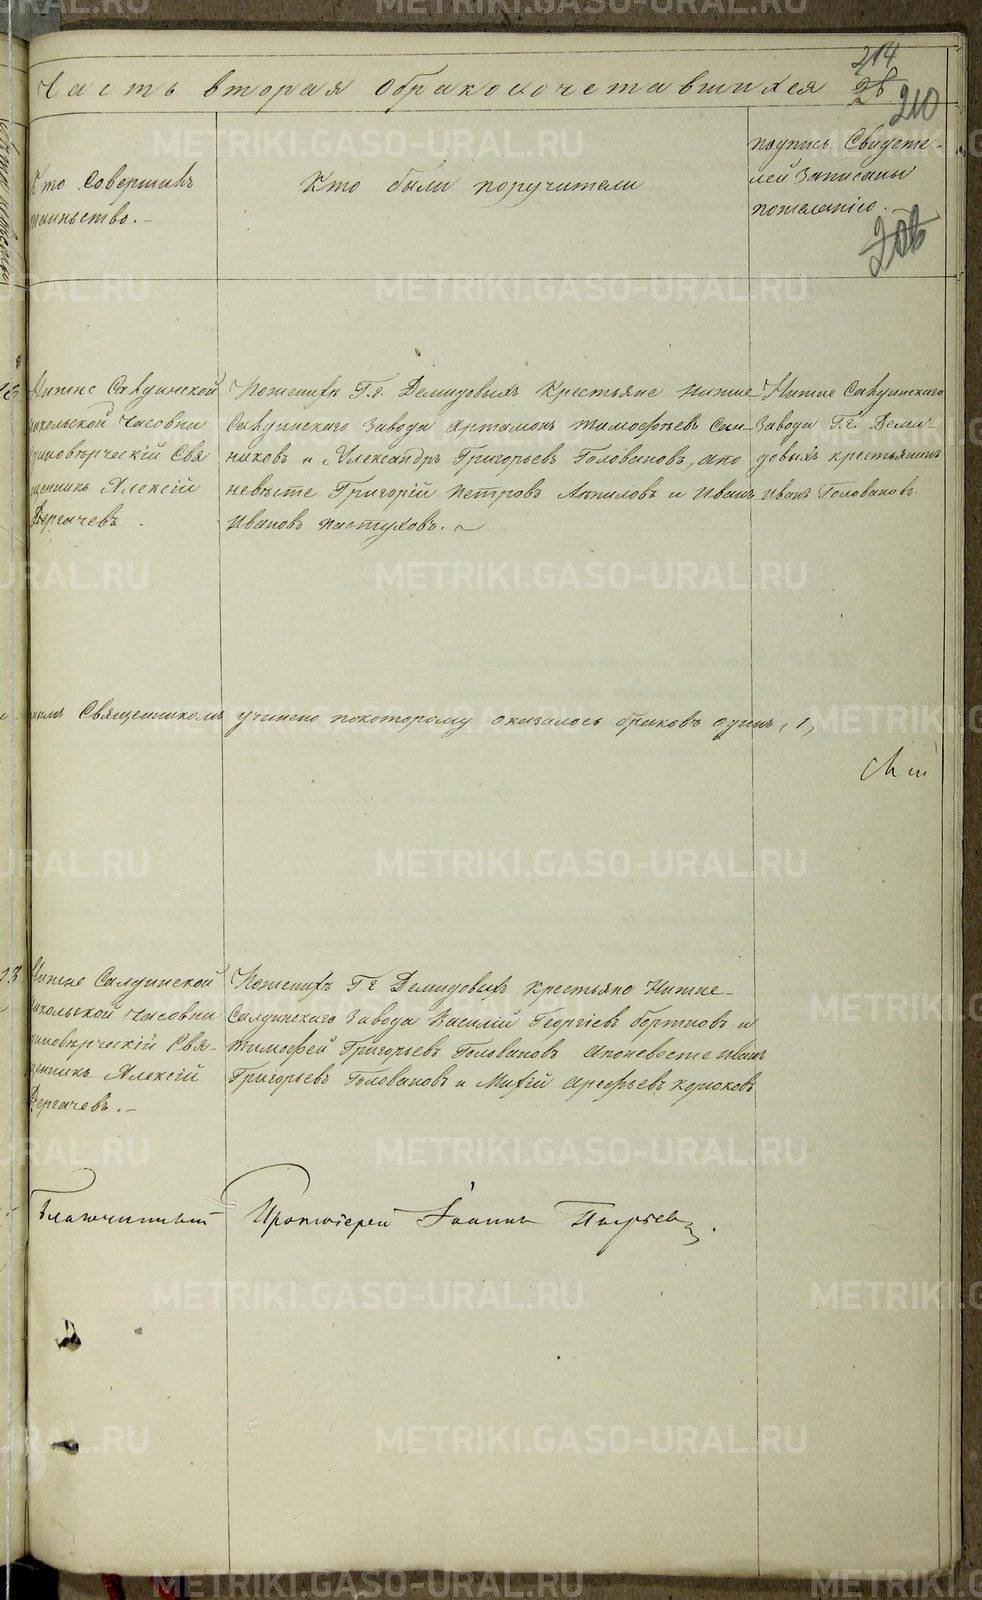 214
Часть вторая о бракосочетавшихся
210
Кто Совершилъ
таиньство.-
Кто были поручители
подпись Свидете-
лей Записаны
пожеланію.
Нижне Салдинской
никольской Часовни
единоверческій Свя
щенникъ Алексій
Дергачевъ.
Поженихѣ Г.г. Демидовыхъ Крестьяне Нижне
Салдинскаго Завода Артамонъ Тимофѣевъ
никовъ и Александръ Григорьевъ Головановъ, апо
невѣсте Григорій Петровъ и Иванъ
Ивановъ Пастуховъ.
Нижне Салдинскаго
Завода Г.г. Деми-
довыхъ крестьянинъ
Иванъ Головановъ.
Священникомъ учинено покоторому оказалось браковъ одинъ, 1,
23
Нижне Салдинской
никольской Часовни
единовѣрческій Свя-
щенникъ Алексій
Дергачевъ.-
Поженихѣ Г.г. Демидовыхъ крестьяне Нижне-
Салдинскаго Завода Василій Георгіевъ Бортновъ и
Тимофей Григорьевъ Головановъ апоневесте Иванъ
Григорьевъ Головановъ и Арефьевъ Корюковъ
Благочинный Протоіерей Іоаннъ
METRIKI.GASO-URAL.RU